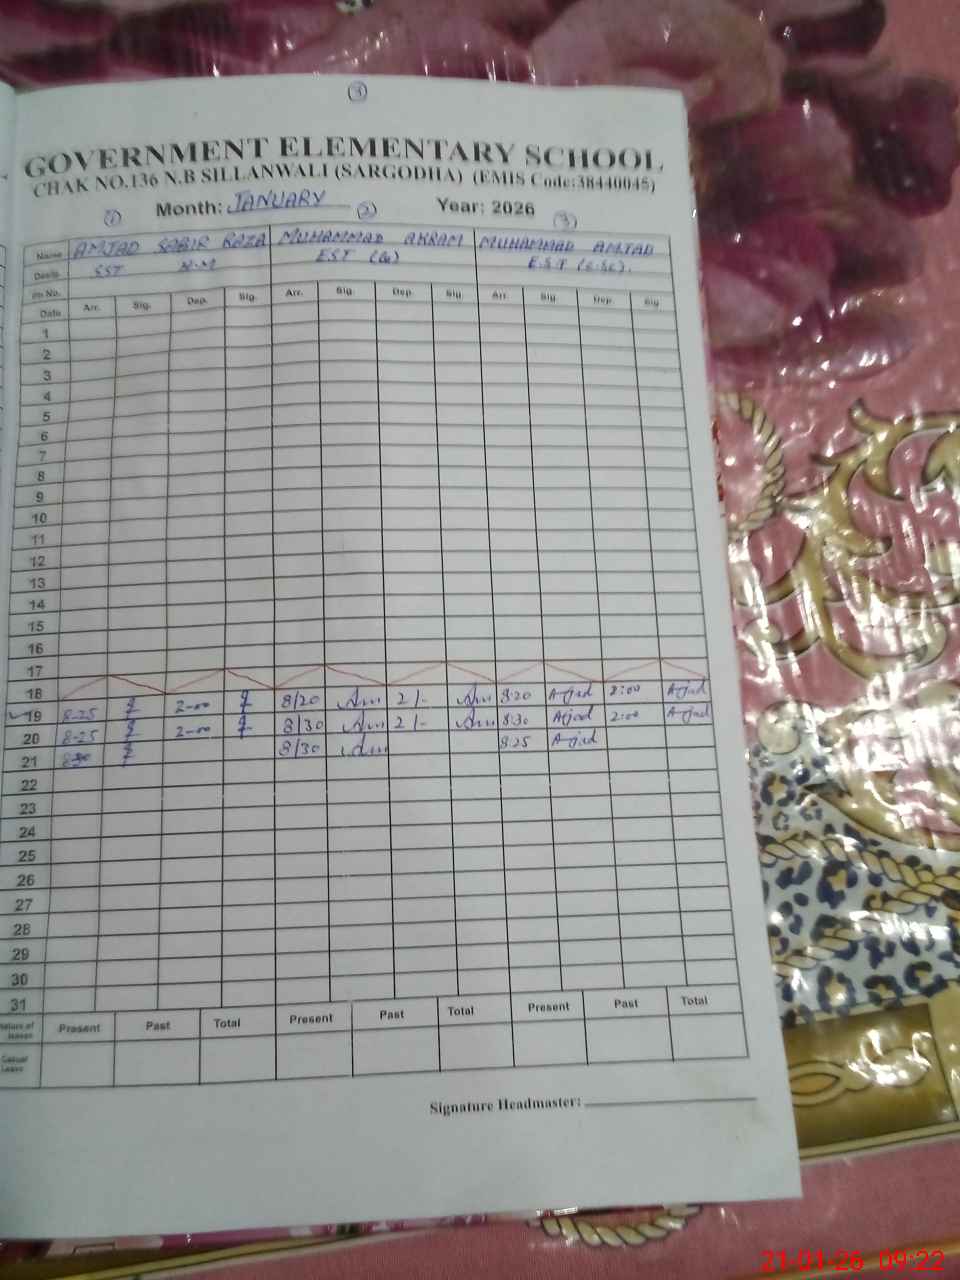 3
GOVERNMENT ELEMENTARY SCHOOL
CHAK NO.136 N.B SILLANWALI (SARGODHA) (EMIS Code:38440045)
Month: JANUARY Year: 2026
1 2 3
Name AMJAD SABIR RAZA MUHAMMAD AKRAM MUHAMMAD AMJAD
Desig. SST H.M EST (G) E.S.T (S.Sc).
No.
Date Arr. Sig. Dep. Sig. Arr. Sig. Dep. Sig Arr. Sig. Dep. Sig
1
2
3
4
5
6
7
8
9
10
11
12
13
14
15
16
17
18
19 8-25 2-00 8/20 2/- 8:20 Ajad 2:00 Ajad
20 8-25 2-00 8/30 2/- 8:30 Ajad 2:00 Ajad
21 8/30 8:25 Ajad
22
23
24
25
26
27
28
29
30
31
Nature of leaves Present Past Total Present Past Total Present Past Total
Casual Leave
Signature Headmaster:
21-01-26 09:22